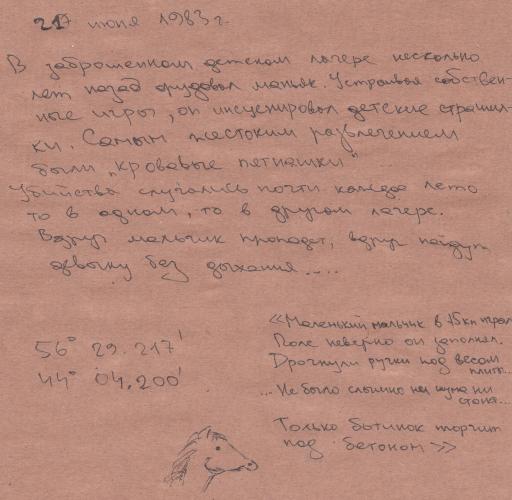 217 июня 1983 г.
В заброшенном детском лагере несколько
лет назад орудовал маньяк. Устраивая собствен-
ные игры, он инсценировал детские страшил-
ки. Самым жестоким развлечением
были „кровавые пятнашки"
Убийства случались почти каждое лето
то в одном, то в другом лагере.
Вдруг мальчик пропадет, вдруг найдут
девочку без дыхания....
56° 29.217'
44° 04.200'
«Маленький мальчик в 15 кп играл
Поле неверно он заполнял.
Дрогнули ручки под весом
плиты...
...Не было слышно ни шума ни
стона...
Только ботинок торчит
под бетоном»